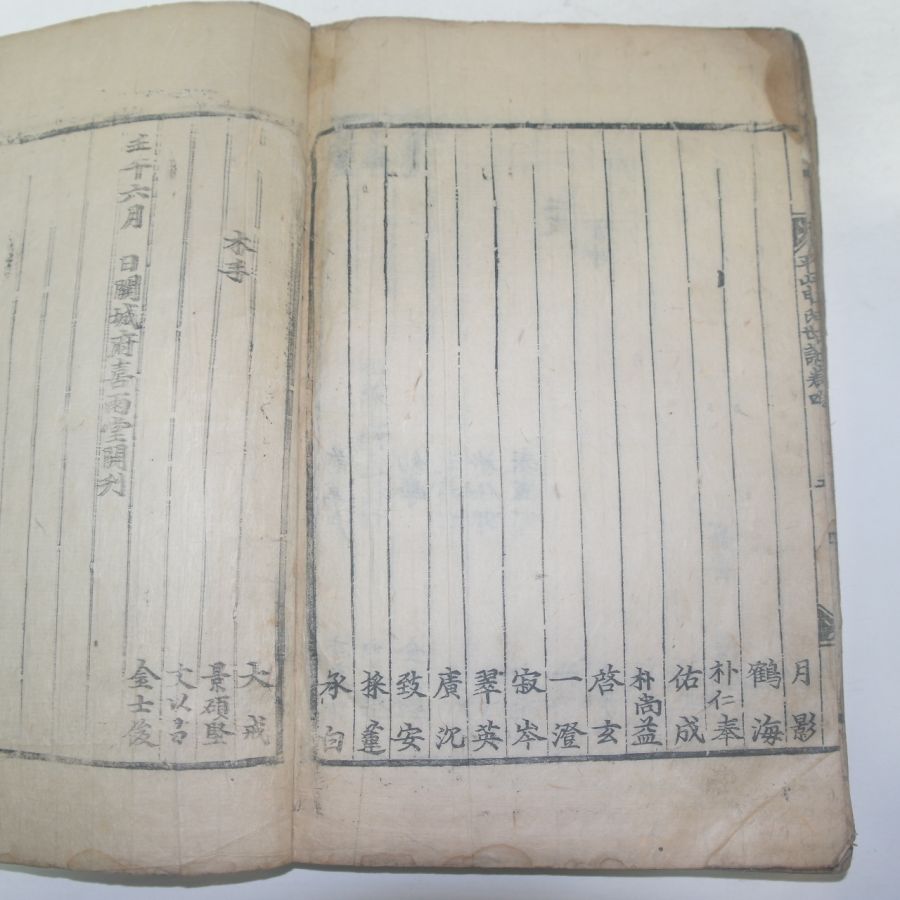 平山申氏世譜卷四
月影
鶴海
朴仁奉
佑成
朴尚益
啓玄
一澄
寂岑
翠英
廣沉
致安
採
承白
木手
大戒
景碩堅
文以
金士俊
壬午六月 日開城府喜雨堂開刋